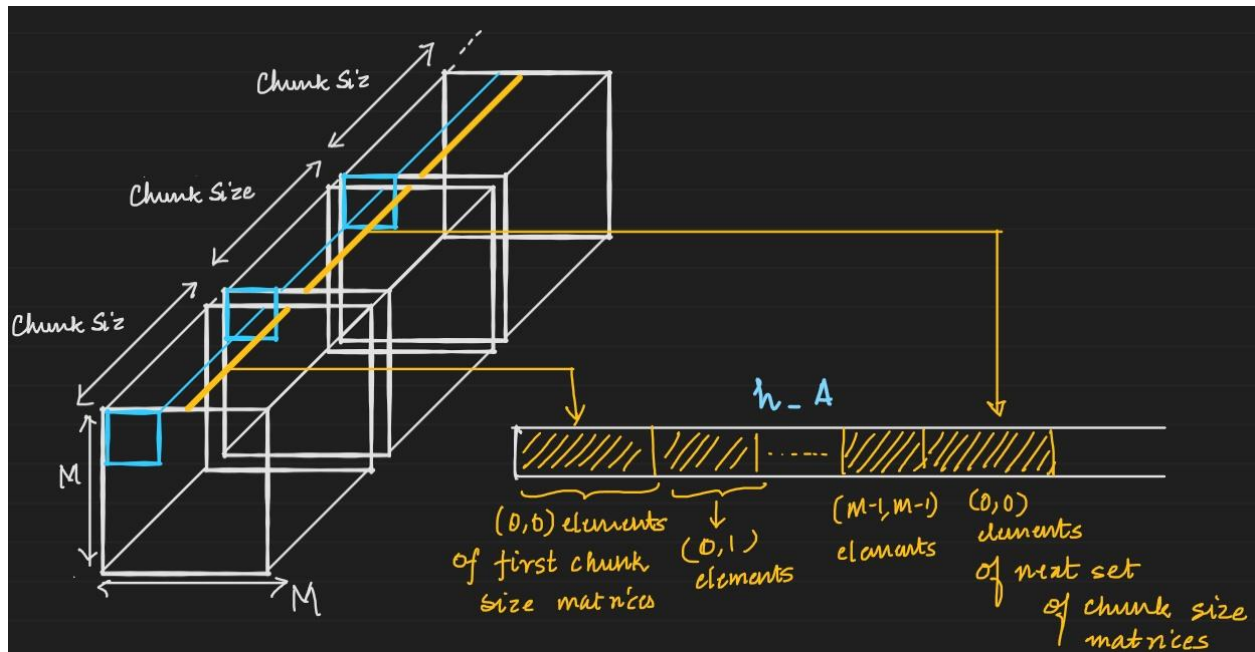 Chunk Siz
Chunk Size
Chunk Siz
M
M
h_A
(0,0) elements
of first chunk
size matrices
(0,1)
elements
(M-1,M-1)
elements
(0,0)
elements
of next set
of chunk size
matrices